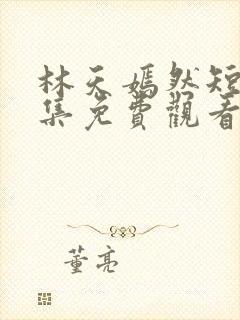 林天嫣然短
集免費觀看
董亮